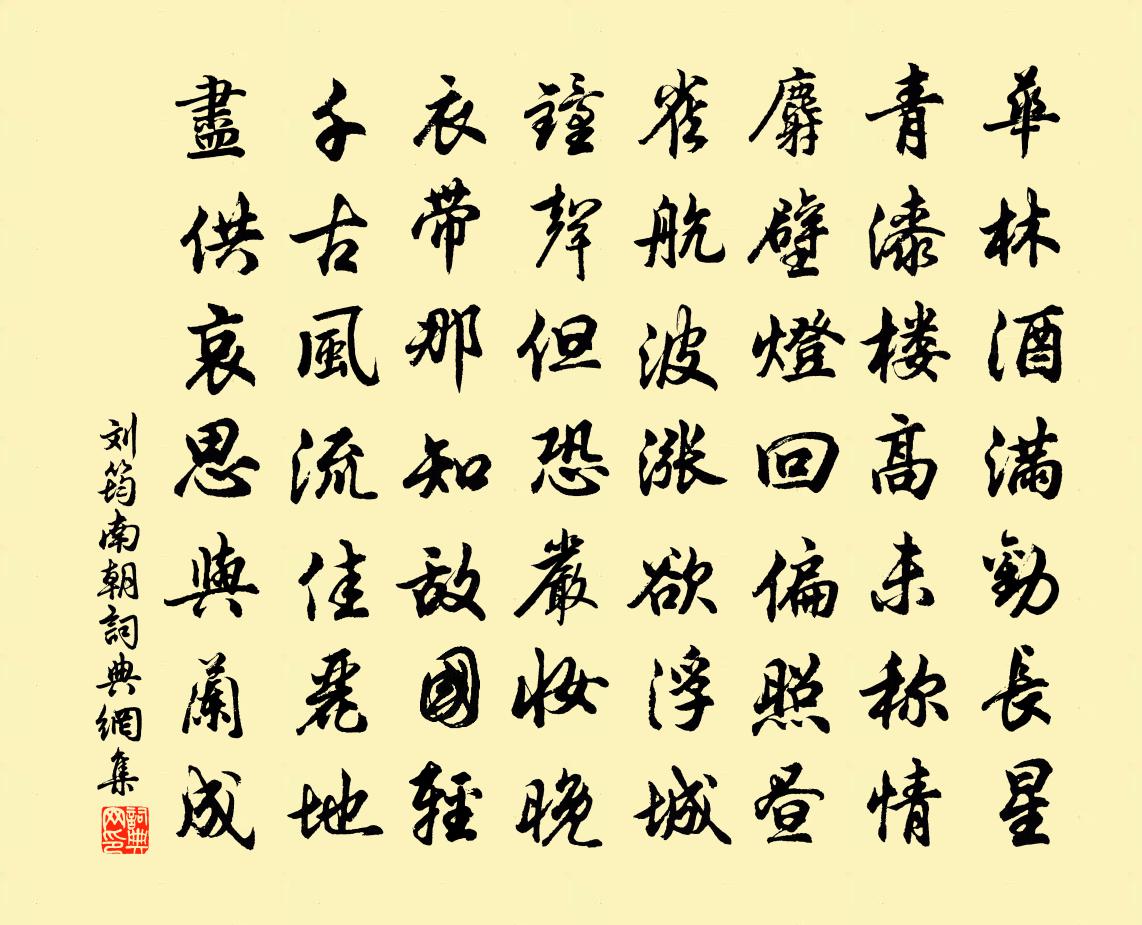 華林酒滿勸長星
青漆楼高未称情
麝壁燈回偏照昼
雀航波漲欲浮城
鐘聲但恐嚴妝晚
衣帶那知敌國輕
千古風流佳麗地
盡供哀思與蘭成
刘筠南朝詞典網集
詞典网印